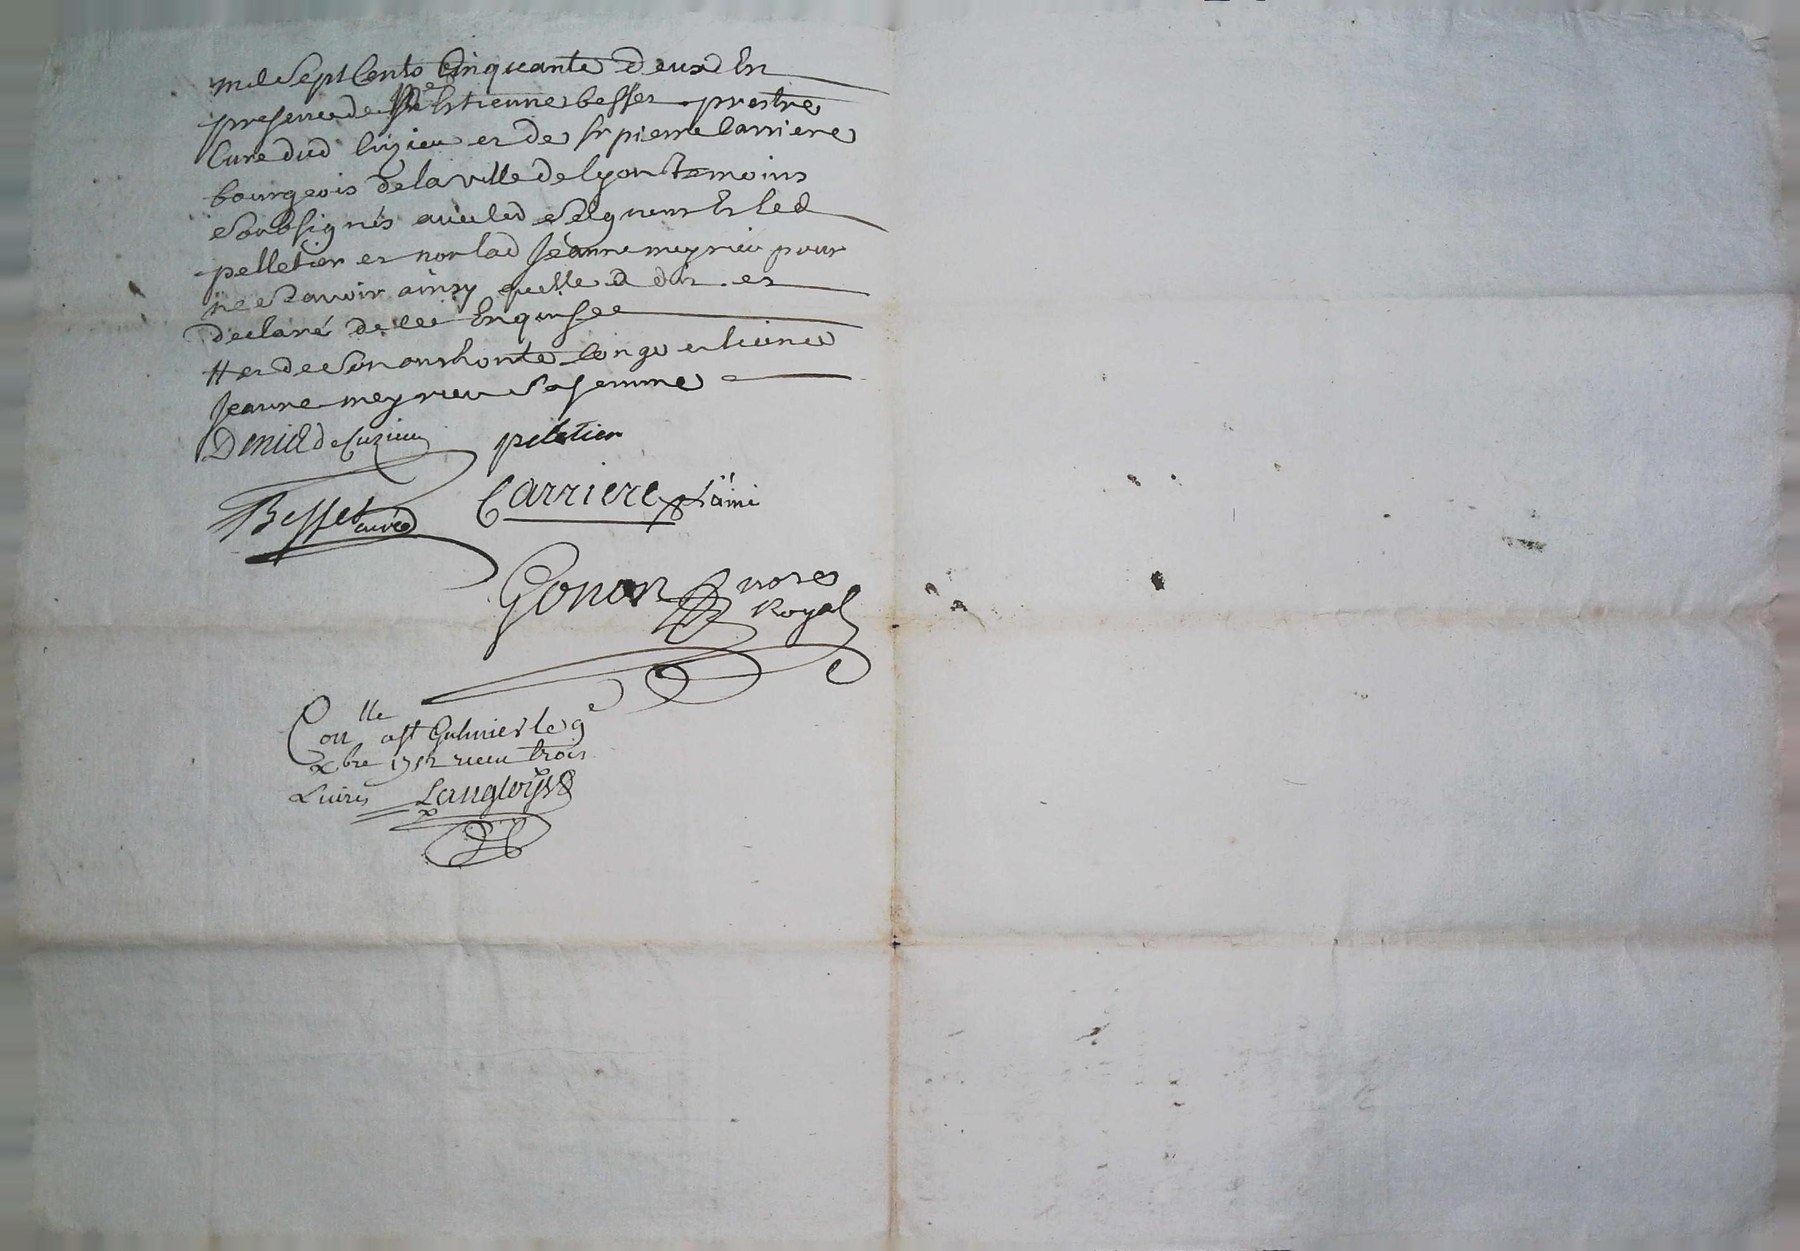 mil sept Cents Cinquante deux En
presence de Mre Estienne besset prestre
Curé dud Cuzieu et de sr pierre Carriere
bourgeois de la ville de lyon temoins
Soubsignés avec led Seigneur Et led
pelletier et non lad Jeanne meyrieu pour
ne Scavoir ainsy quelle a dit et
declaré de ce Enquise
# et de Son authorité Congé et licence
Jeanne meyrieu Sa femme
Deniel de Cuzieu peletier
Besset curé Carriere L'ainé
Gonon nore
Royal
Conlle a st Galmier le 9e
Xbre 1752 receu trois
Livres Langloys